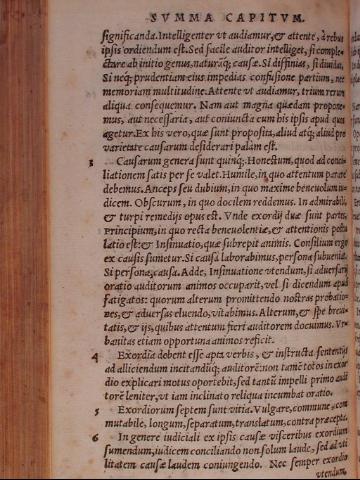 SVMMA CAPITVM.
significanda. Intelligenter vt audiamur, & attente, à rebus
ipsis ordiendum est. Sed facile auditor intelliget, si comple-
ctare ab initio genus, naturáq; causæ. Si diffinias, si diuidas,
Si neq; prudentiam eius impedias confusione partium, nec
memoriam multitudine. Attente vt audiamur, trium rerum
aliqua consequemur. Nam aut magna quædam propone-
mus, aut necessaria, aut coniuncta cum his ipsis apud quos
agetur. Ex his vero, quæ sunt proposita, aliud atq; aliud pro
varietate causarum desiderari palam est.
3 Causarum genera sunt quinq; Honestum, quod ad conci-
liationem satis per se valet. Humile, in quo attentum parare
debemus. Anceps seu dubium, in quo maxime beneuolum iu-
dicem. Obscurum, in quo docilem reddemus. In admirabili,
& turpi remedijs opus est. Vnde exordij duæ sunt partes,
Principium, in quo recta beneuolentiæ, & attentionis postu
latio est: & Insinuatio, quæ subrepit animis. Consilium ergo
ex causis sumetur. Si causâ laborabimus, persona subueniat,
Si persona, causa. Adde, Insinuatione vtendum, si aduersarij
oratio auditorum animos occuparit, vel si dicendum apud
fatigatos: quorum alterum promittendo nostras probatio-
nes, & aduersas eluendo, vitabimus. Alterum, & spe breui-
tatis, & ijs, quibus attentum fieri auditorem docuimus. Vr-
banitas etiam opportuna animos reficit.
4 Exordia debent esse apta verbis, & instructa sententijs
ad alliciendum incitandúq; auditorē: non tamē totos in exor
dio explicari motus oportebit, sed tantū impelli primo audi
torē leniter, vt iam inclinato reliqua incumbat oratio.
5 Exordiorum septem sunt vitia. Vulgare, commune, com
mutabile, longum, separatum, translatum, contra præcepta.
6 In genere iudiciali ex ipsis causæ visceribus exordium
sumendum, iudicem conciliando non solum laude, sed ad vti
litatem causæ laudem coniungendo. Nec semper exordio
vtendum,